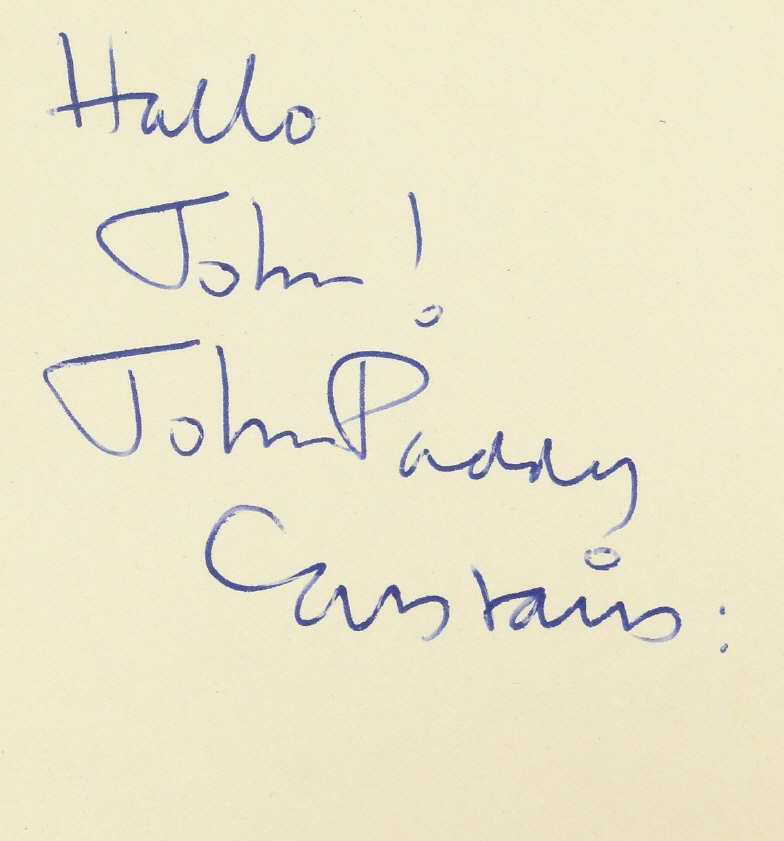 Hallo
John!
John Paddy
Carstairs: